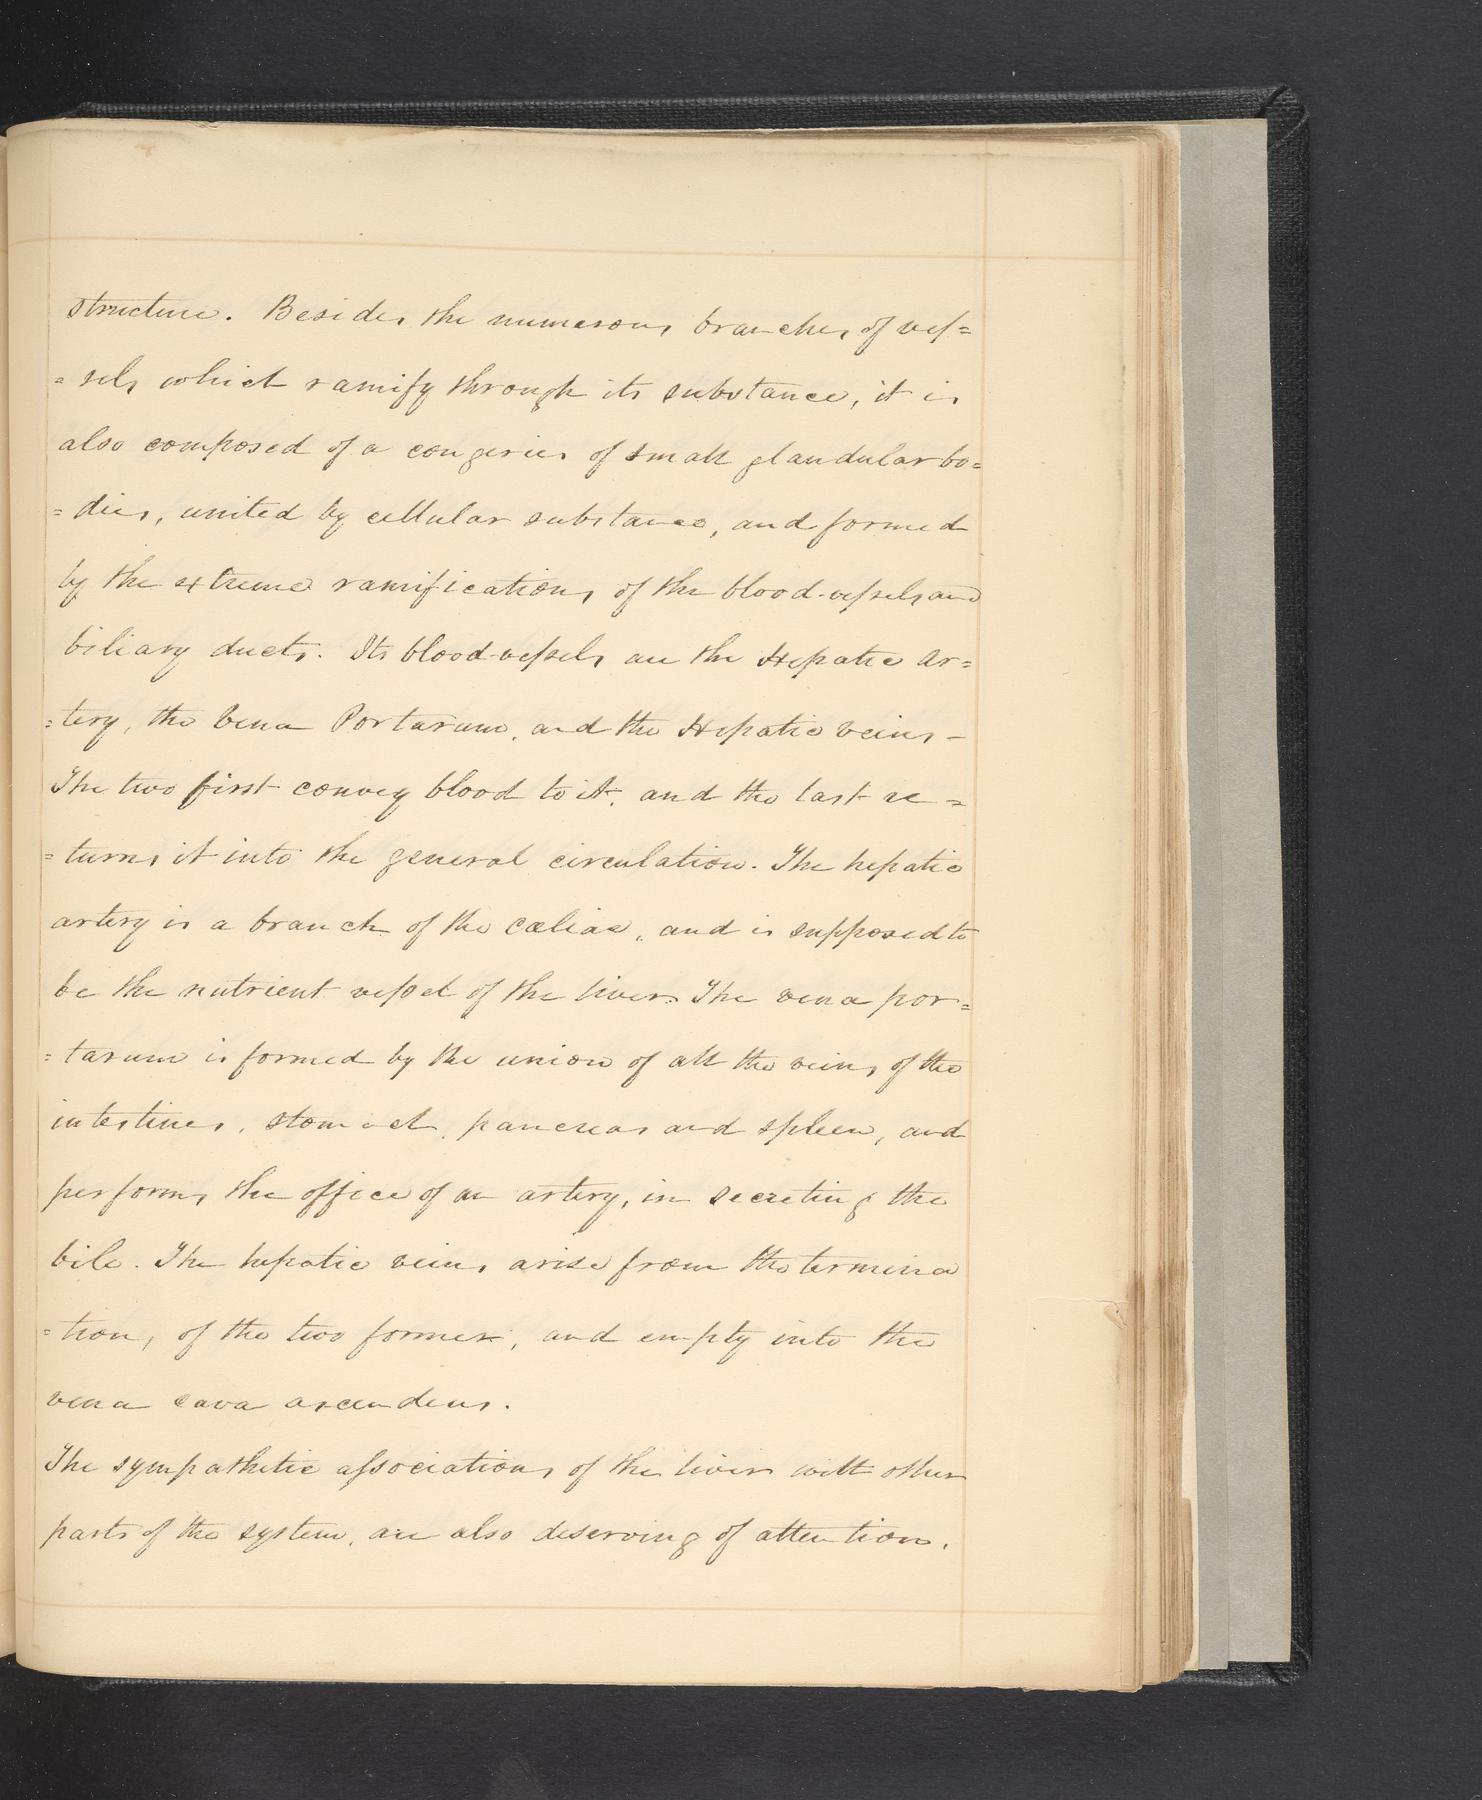 structure. Besides the numerous branches of ves=
=sels which ramify through its substance, it is
also composed of a congeries of small glandular bo=
=dies, united by cellular substance, and formed
by the extreme ramifications of the blood-vessels and
biliary ducts. Its blood-vessels are the Hepatic Ar=
=tery, the Vena Portarum, and the Hepatic veins -
The two first convey blood to it, and the last re =
=turns it into the general circulation. The hepatic
artery is a branch of the cœliac, and is supposed to
be the nutrient vessel of the liver. The vena por=
=tarum is formed by the union of all the veins of the
intestines, stomach, pancreas and spleen, and
performs the office of an artery, in secreting the
bile. The hepatic veins arise from the termina
=tions of the two former, and empty into the
vena cava ascendens.
The sympathetic associations of the liver with other
parts of the system, are also deserving of attention.